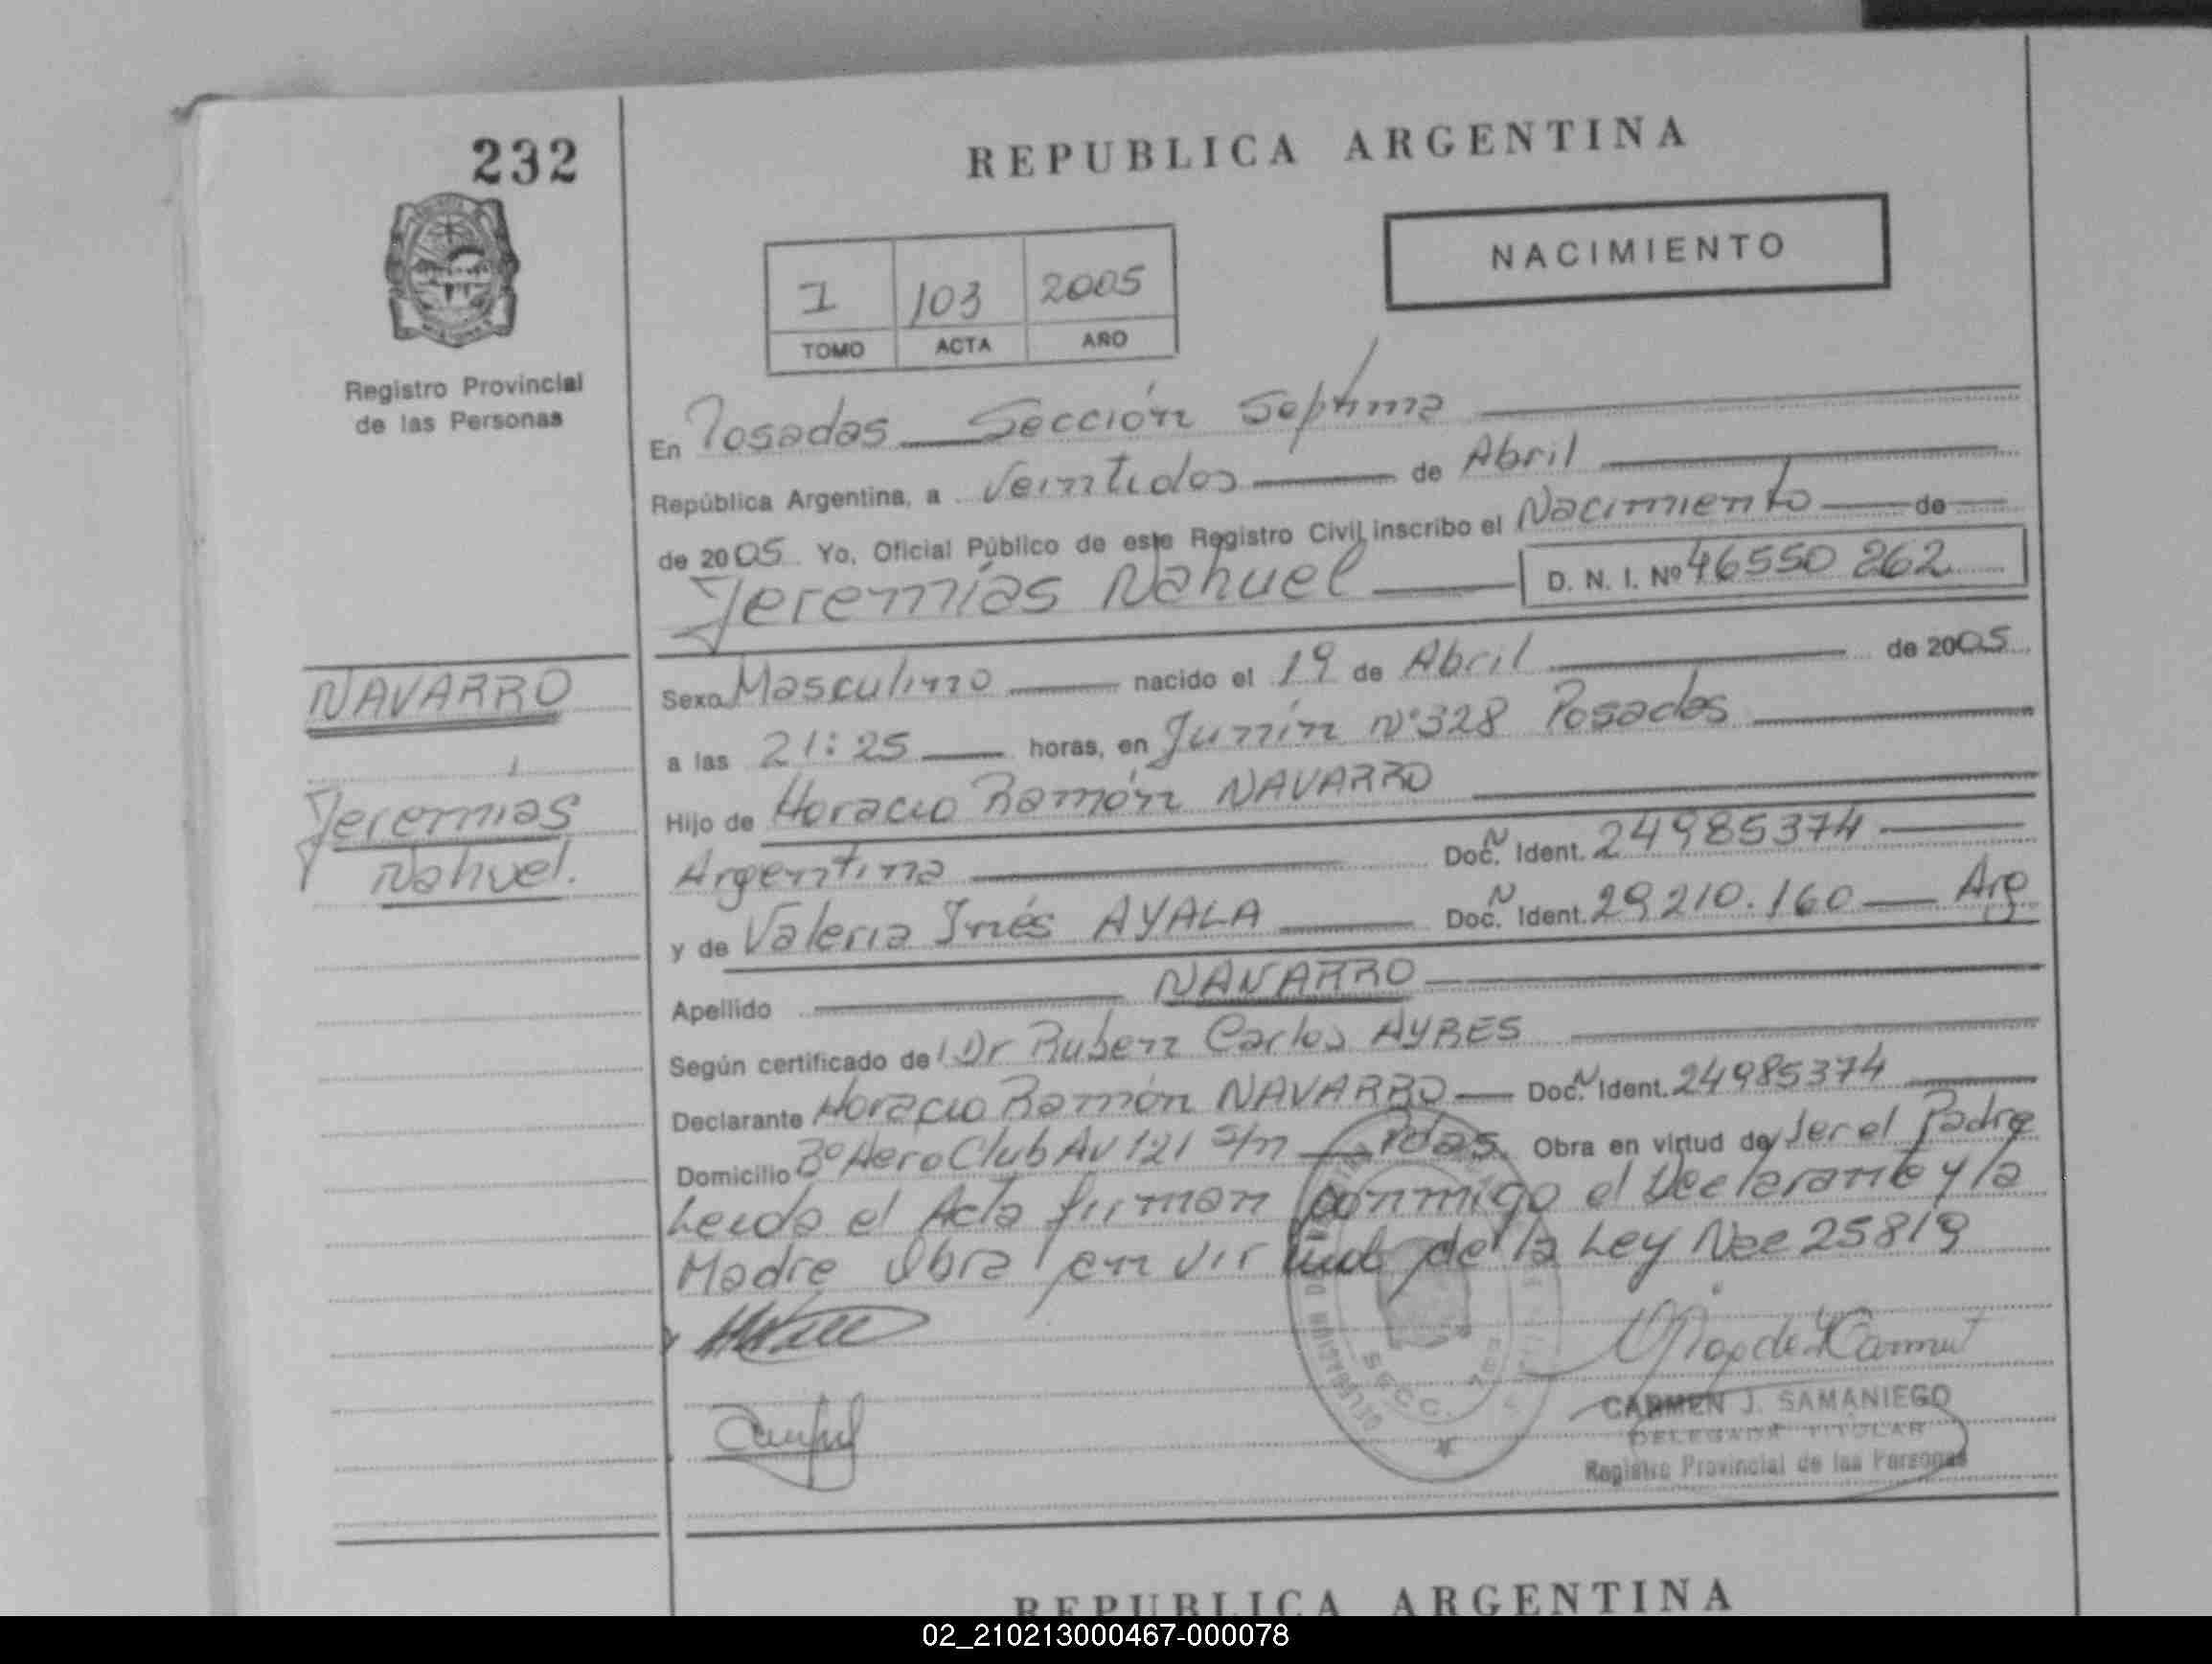 232
REPUBLICA ARGENTINA
NACIMIENTO
1 103 2005
TOMO ACTA AÑO
Registro Provincial
de las Personas
En Posadas Sección Septima
República Argentina, a veintidos de Abril
de 2005 Yo, Oficial Público de este Registro Civil inscribo el Nacimiento de
Jeremías Nahuel D. N. I. Nº 46550 262
NAVARRO
Jeremías
Nahuel.
Sexo Masculino nacido el 19 de Abril de 2005
a las 21:25 horas, en Junín Nº 328 Posadas
Hijo de Horacio Ramón NAVARRO
Argentina Doc. N Ident. 24985374
y de Valeria Inés AYALA Doc. N Ident. 29210.160 Arg
Apellido NAVARRO
Según certificado de Dr Ruben Carlos AYRES
Declarante Horacio Ramón NAVARRO Doc. N Ident. 24985374
Domicilio Bº Aero Club Av 121 s/n Pdas. Obra en virtud de Ser el Padre
Leida el Acta firman conmigo el Declarante y la
Madre Obra en virtud de la Ley Nº 25819
CARMEN J. SAMANIEGO
DELEGADA TITULAR
Registro Provincial de las Personas
SECC. 7
REPUBLICA ARGENTINA
02_210213000467-000078